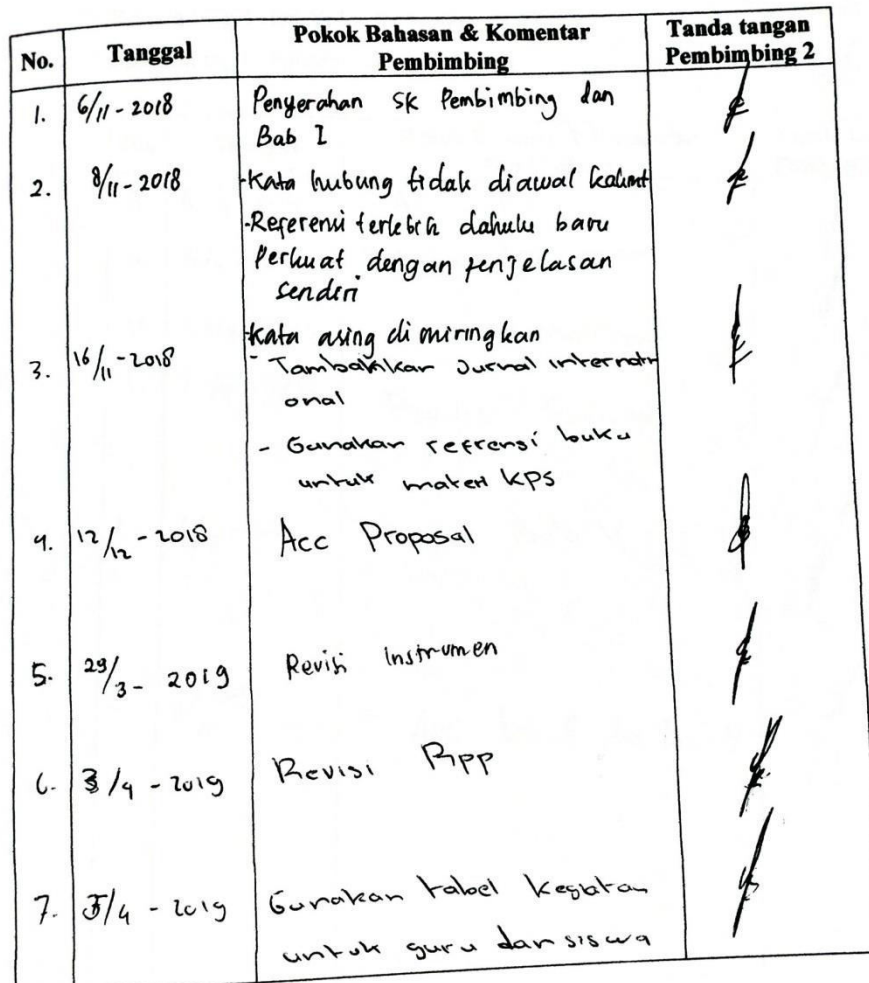 No. Tanggal Pokok Bahasan & Komentar Tanda tangan
Pembimbing Pembimbing 2
1. 6/11 - 2018 Penyerahan SK Pembimbing dan
Bab I
2. 8/11 - 2018 -Kata hubung tidak diawal kalimt
-Referensi terlebih dahulu baru
Perkuat dengan penjelasan
sendiri
-Kata asing dimiringkan
3. 16/11 - 2018 - Tambahkan Jurnal internati
onal
- Gunakan refrensi buku
untuk materi KPS
4. 12/12 - 2018 Acc Proposal
5. 29/3 - 2019 Revisi Instrumen
6. 3/4 - 2019 Revisi Rpp
7. 5/4 - 2019 Gunakan tabel kegiatan
untuk guru dan siswa